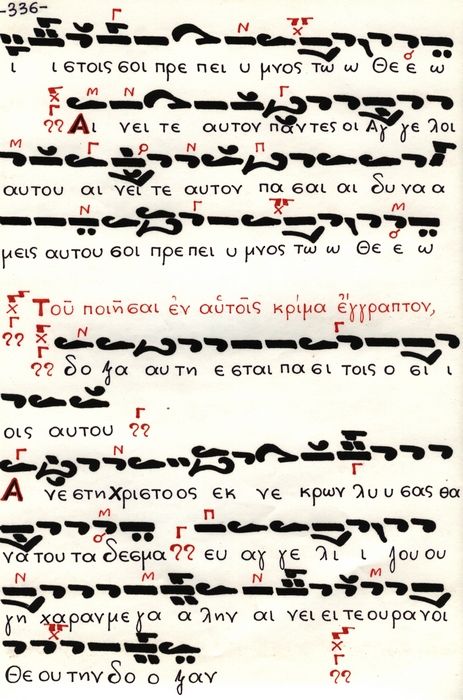 -336-
ι ι στοις σοι πρε πει υ μνος τω ω Θε ε ω
Αι νει τε αυτον πάντες οι Αγ γε λοι
αυτου αι νει τε αυτον πα σαι αι δυ να α
μεις αυτου σοι πρε πει υ μνος τω ω Θε ε ω
Τοῦ ποιῆσαι ἐν αὐτοῖς κρίμα ἔγγραπτον,
δο ξα αυ τη ε σται πα σι τοις ο σι ι
οις αυτου
Α νε στη Χριστο ος εκ νε κρων λυ υ σας θα
να του τα δεσμα ευ αγ γε λι ι ζου ου
γη χαραν με γα α λην αι νει ει τε ουρανοι
Θε ου την δο ο ξαν